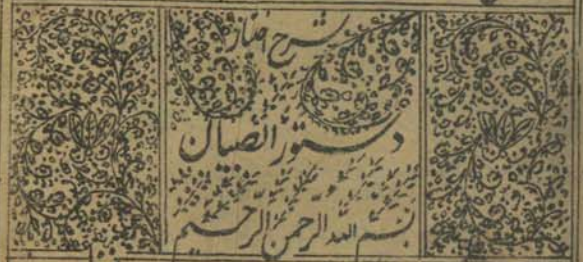 شرح
دستور الصبیان
بسم الله الرحمن الرحیم